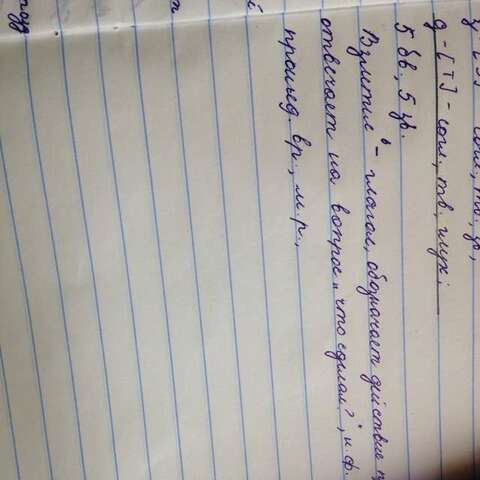 согл., тв., зв.,
д - [т] - согл., тв., глух.;
5 бв., 5 зв.
⁶ - глагол, обозначает действие п
отвечает на вопрос „что сделал?", н.ф.
прошед. вр., м.р.,
й
т